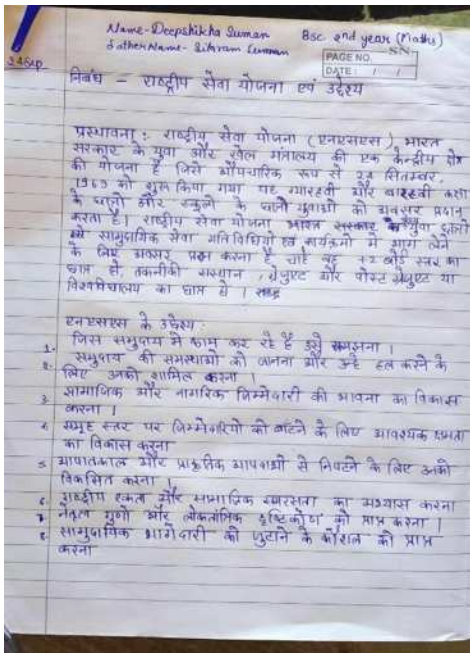 Name-Deepshikha Suman Bsc 2nd year (Maths)
Father Name- Sitaram Suman SN
PAGE NO.
DATE: / /
24 Sep
निबंध - राष्ट्रीय सेवा योजना एवं उद्देश्य
प्रस्तावना :- राष्ट्रीय सेवा योजना (एनएसएस) भारत
सरकार के युवा और खेल मंत्रालय की एक केन्द्रीय क्षेत्र
की योजना है जिसे औपचारिक रूप से 24 सितम्बर,
1969 को शुरू किया गया यह ग्यारहवी और बारहवी कक्षा
के छात्रो और स्कूलो के युवाओ को अवसर प्रदान
करता है। राष्ट्रीय सेवा योजना भारत सरकार युवा छात्रो
सामुदायिक सेवा गतिविधियो एवं कार्यक्रमो मे भाग लेने
के लिए अवसर करना है चाहे वह +2 बोर्ड स्तर का
छात्र हो, तकनीकी संस्थान, ग्रेजुएट और पोस्ट ग्रेजुएट या
विश्वविद्यालय का छात्र हो।
एनएसएस के उद्देश्य :
1. जिस समुदाय मे काम कर रहे है उसे समझना।
2. समुदाय की समस्याओ को जानना और उन्हे हल करने के
लिए उनको शामिल करना
3. सामाजिक और नागरिक जिम्मेदारी की भावना का विकास
करना।
4. समूह स्तर पर जिम्मेदारियो को बाँटने के लिए आवश्यक क्षमता
का विकास करना
5. आपातकाल और प्राकृतिक आपदाओ से निपटने के लिए उनको
विकसित करना।
6. राष्ट्रीय एकता और सामाजिक समरसता का अभ्यास करना
7. नेतृत्व गुणो और लोकतांत्रिक दृष्टिकोण को प्राप्त करना।
8. सामुदायिक भागेदारी को जुटाने के कौशल को प्राप्त
करना